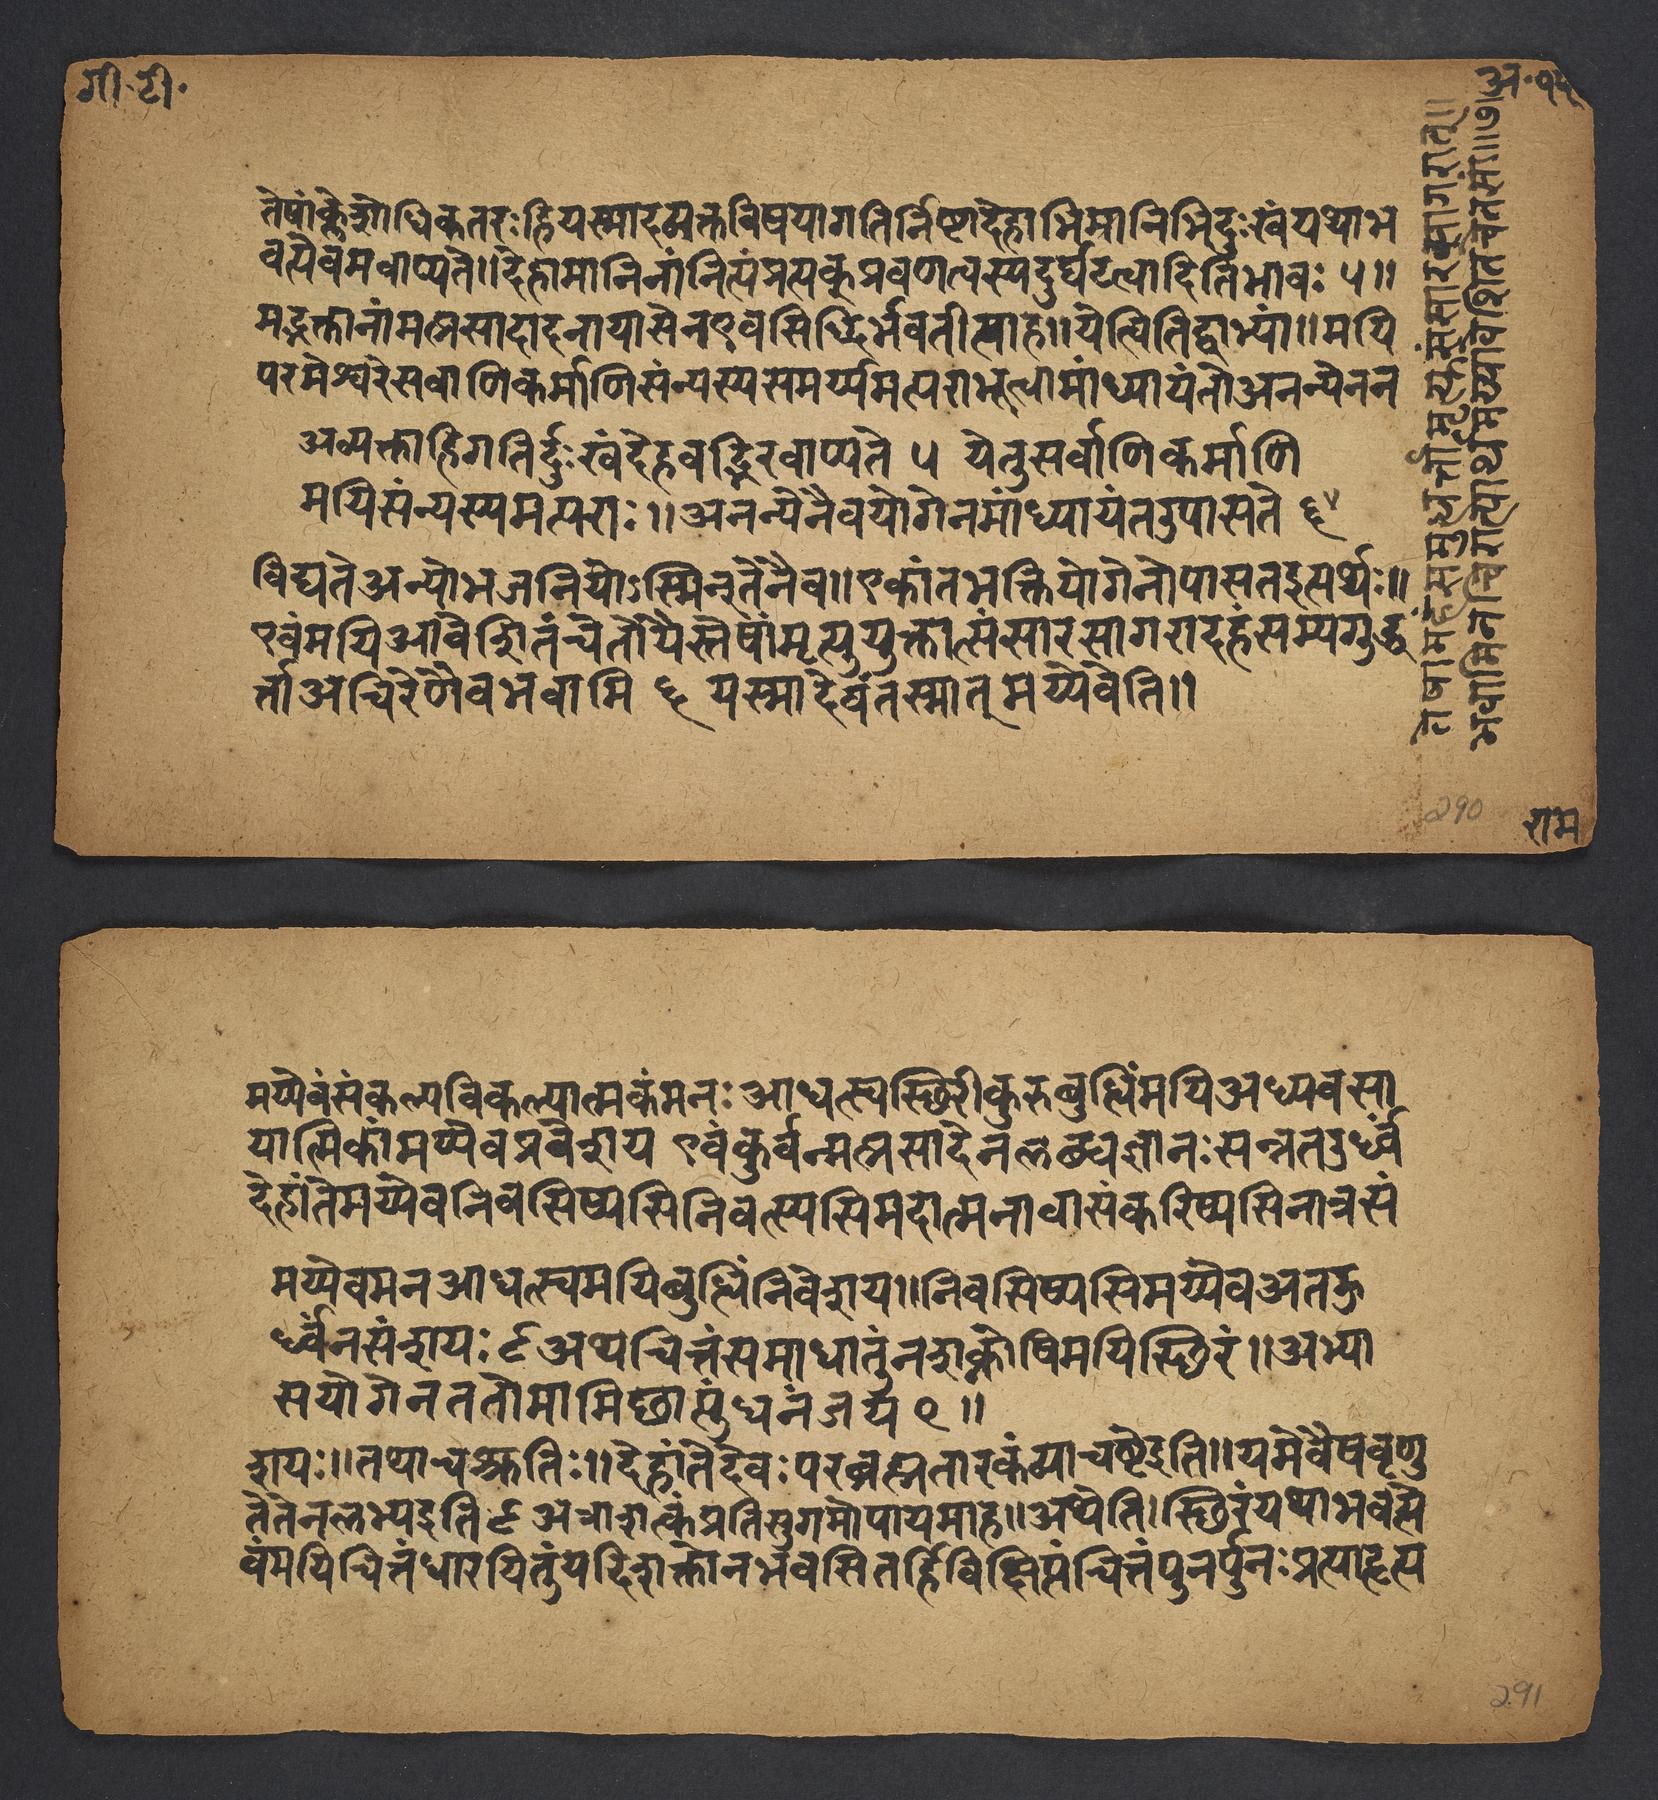 गी. टी.
अ. १२
तेषांक्लेशोधिकतरःहियस्मादव्यक्तविषयागतिर्निष्टादेहाभिमानिभिदुःखंयथाभ
वत्येवमवाप्यते।।देहामानिनांनित्यंप्रत्यक्प्रवणत्वस्यदुर्घटत्वादितिभावः ५॥
मद्भक्तानांमत्प्रसादादनायासेनएवसिद्धिर्भवतीत्याह॥येत्वितिद्वाभ्यां॥मयि
परमेश्वरेसर्वाणिकर्माणिसंन्यस्यसमर्य्यमत्पराभूत्वामांध्यायंतोअनन्येनन
अव्यक्ताहिगतिर्दुःखंदेहवद्भिरवाप्यते ५ येतुसर्वाणिकर्माणि
मयिसंन्यस्यमत्पराः॥अनन्येनैवयोगेनमांध्यायंतउपासते ६
विद्यतेअन्योभजनियोऽस्मिन्तेनैव॥एकांतभक्तियोगेनोपासतइत्यर्थः॥
एवंमयिआवेशितंचेतोयैस्तेषांमृत्युयुक्तात्संसारसागरादहंसम्यगुद्ध
र्त्ताअचिरेणैवभवामि ६ यस्मादेवंतस्मात् मय्येवेति॥
तेषामहंसमुद्धर्त्तामृत्युसंसारसागरात्॥
भवामिनचिरात्पार्थमय्यावेशितचेतसां॥७॥
290
राम
मय्येवंसंकल्पविकल्पात्मकंमनःआधत्स्वस्छिरीकुरुबुद्धिंमयिअध्यवसा
यात्मिकांमय्येवप्रवेशय एवंकुर्वन्मत्प्रसादेनलब्धज्ञानःसन्नतउर्ध्वं
देहांतेमय्येवनिवसिष्यसिनिवत्स्यसिमदात्मनावासंकरिष्यसिनात्रसं
मय्येवमनआधत्स्वमयिबुद्धिंनिवेशय॥निवसिष्यसिमय्येवअतऊ
र्ध्वंनसंशयः ८अथचित्तंसमाधातुंनशक्नोषिमयिस्छिरं॥अभ्या
सयोगेनततोमामिछाप्तुंधनंजय ९॥
शयः॥तथाचश्रुतिः॥देहांतेदेवःपरब्रह्मतारकंव्याचष्टेइति॥यमेवैषवृणु
तेतेनलभ्यइति ८ अत्राशक्तंप्रतिसुगमोपायमाह॥अथेति।स्छिरंयथाभवत्ये
वंमयिचित्तंधारयितुंयदिशक्तोनभवसितर्हिविक्षिप्तंचित्तंपुनर्पुनःप्रत्याहृत्य
291